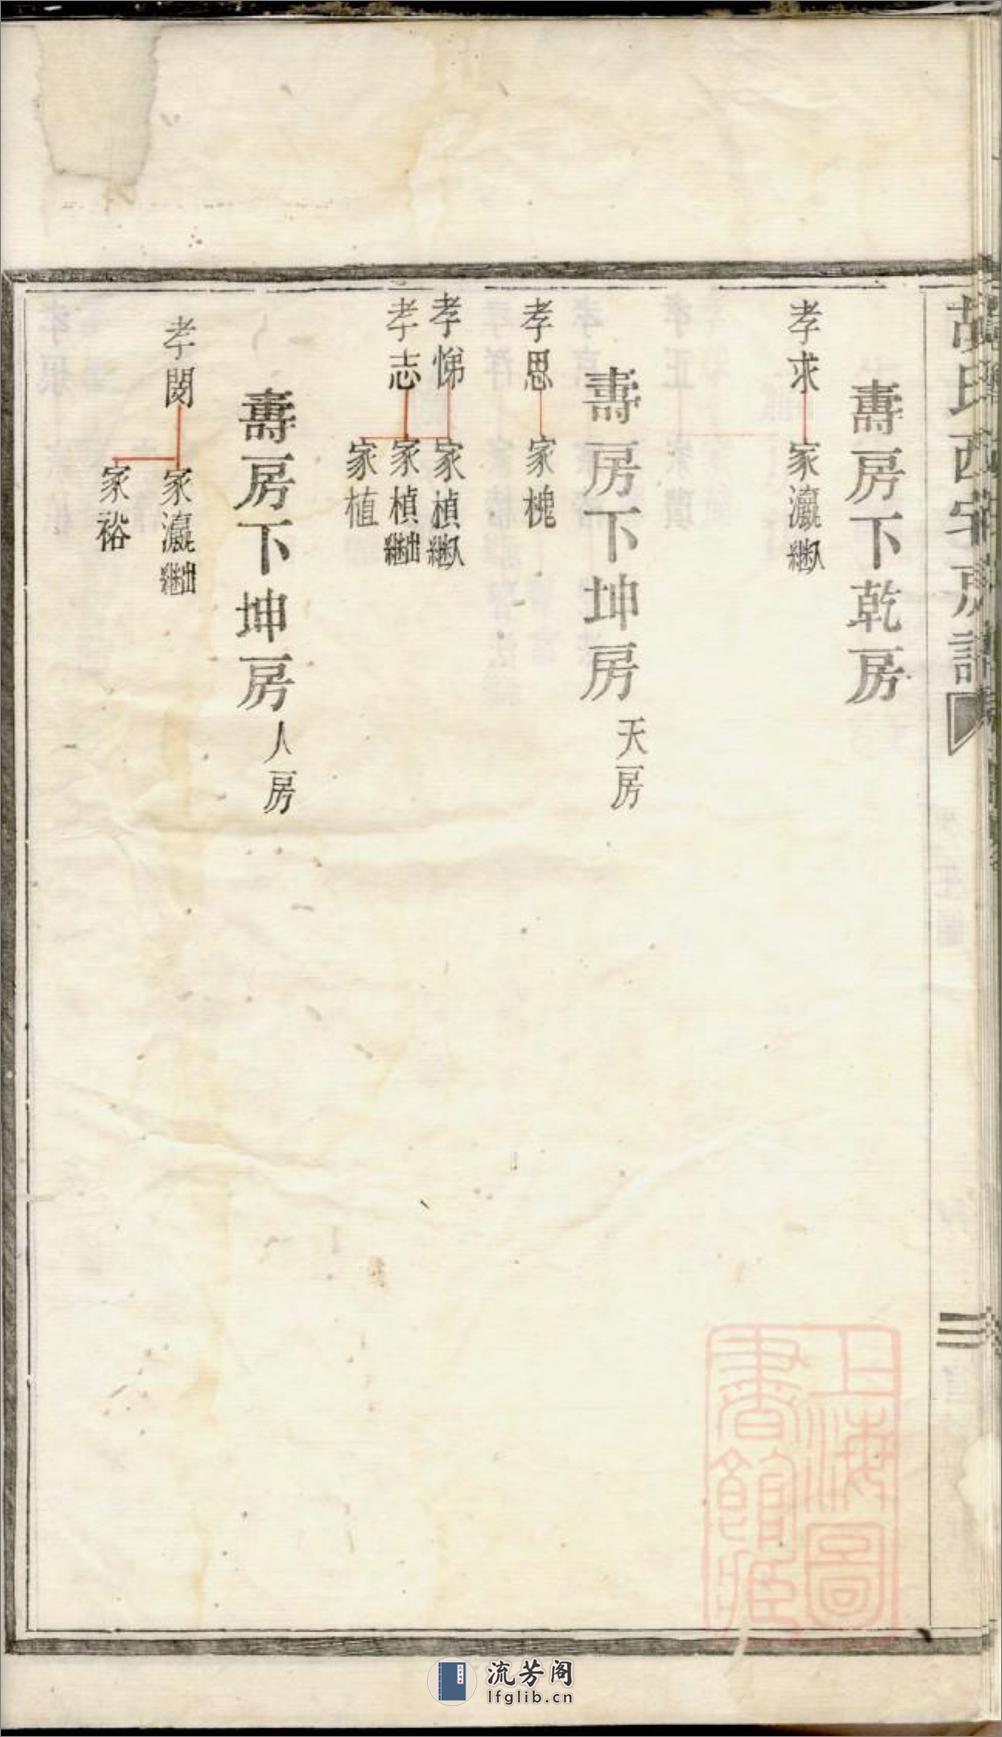 胡氏西宅房譜
三
壽房下乾房
孝求 家瀛入繼
壽房下坤房天房
孝思 家槐
孝悌 家楨入繼
孝志 家楨出繼
家植
壽房下坤房人房
孝閔 家瀛出繼
家裕
上海圖
書館藏
流芳阁
lfglib.cn